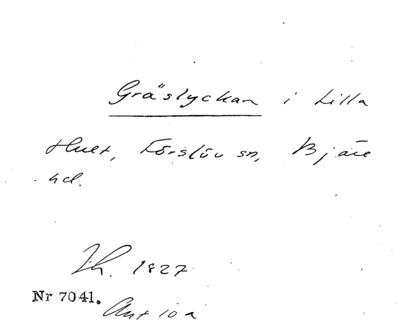 Gräslyckan i Lilla
Hult, Förslöv sn, Bjäre
hd.
Jh. 1827
Nr 7041.
Ant 10a